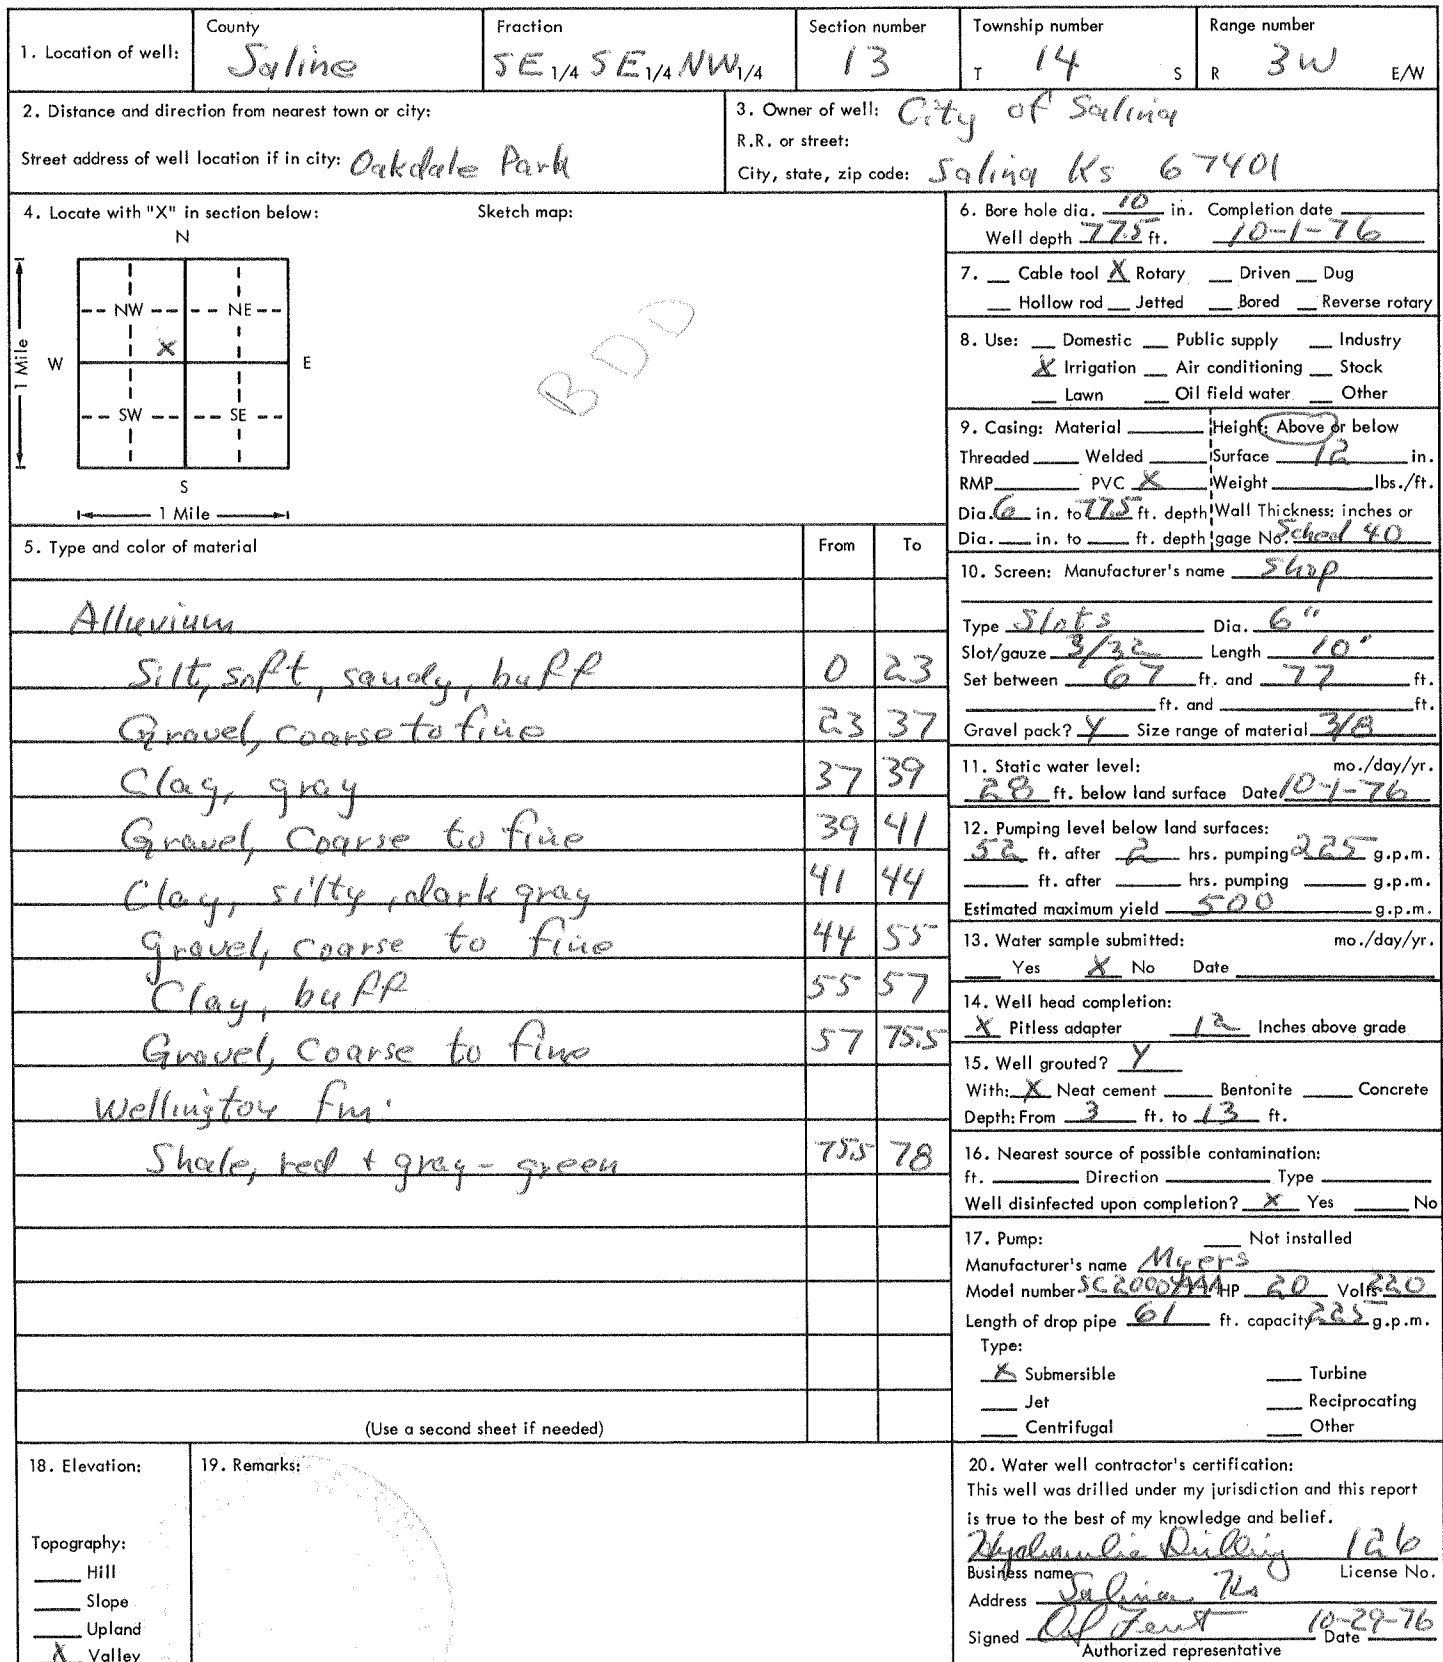 County Fraction Section number Township number Range number
1. Location of well: Saline SE 1/4 SE 1/4 NW 1/4 13 T 14 S R 3W E/W
2. Distance and direction from nearest town or city:
Street address of well location if in city: Oakdale Park
3. Owner of well: City of Salina
R.R. or street:
City, state, zip code: Salina Ks 67401
4. Locate with "X" in section below: Sketch map:
N
NW NE
X
W E
1 Mile
SW SE
S
1 Mile
BDD
5. Type and color of material From To
Alluvium
Silt, soft, sandy, buff 0 23
Gravel, coarse to fine 23 37
Clay, gray 37 39
Gravel, Coarse to fine 39 41
Clay, silty, dark gray 41 44
gravel, coarse to fine 44 55
Clay, buff 55 57
Gravel, Coarse to fine 57 75.5
Wellington fm.
Shale, red + gray-green 75.5 78
(Use a second sheet if needed)
6. Bore hole dia. 10 in. Completion date
Well depth 77.5 ft. 10-1-76
7. Cable tool X Rotary Driven Dug
Hollow rod Jetted Bored Reverse rotary
8. Use: Domestic Public supply Industry
X Irrigation Air conditioning Stock
Lawn Oil field water Other
9. Casing: Material Height: Above or below
Threaded Welded Surface 12 in.
RMP PVC X Weight lbs./ft.
Dia. 6 in. to 77.5 ft. depth Wall Thickness: inches or
Dia. in. to ft. depth gage No. Sched 40
10. Screen: Manufacturer's name Shop
Type Slots Dia. 6"
Slot/gauze 3/32 Length 10"
Set between 67 ft. and 77 ft.
ft. and ft.
Gravel pack? Y Size range of material 3/8
11. Static water level: mo./day/yr.
28 ft. below land surface Date 10-1-76
12. Pumping level below land surfaces:
52 ft. after 2 hrs. pumping 225 g.p.m.
ft. after hrs. pumping g.p.m.
Estimated maximum yield 500 g.p.m.
13. Water sample submitted: mo./day/yr.
Yes X No Date
14. Well head completion:
X Pitless adapter 12 Inches above grade
15. Well grouted? Y
With: X Neat cement Bentonite Concrete
Depth: From 3 ft. to 13 ft.
16. Nearest source of possible contamination:
ft. Direction Type
Well disinfected upon completion? X Yes No
17. Pump: Not installed
Manufacturer's name Myers
Model number SC2000YAAA HP 20 Volts 220
Length of drop pipe 61 ft. capacity 225 g.p.m.
Type:
X Submersible Turbine
Jet Reciprocating
Centrifugal Other
18. Elevation:
Topography:
Hill
Slope
Upland
X Valley
19. Remarks:
20. Water well contractor's certification:
This well was drilled under my jurisdiction and this report
is true to the best of my knowledge and belief.
Hydraulic Drilling 126
Business name License No.
Address Salina Ks
Signed Fent 10-29-76 Date
Authorized representative